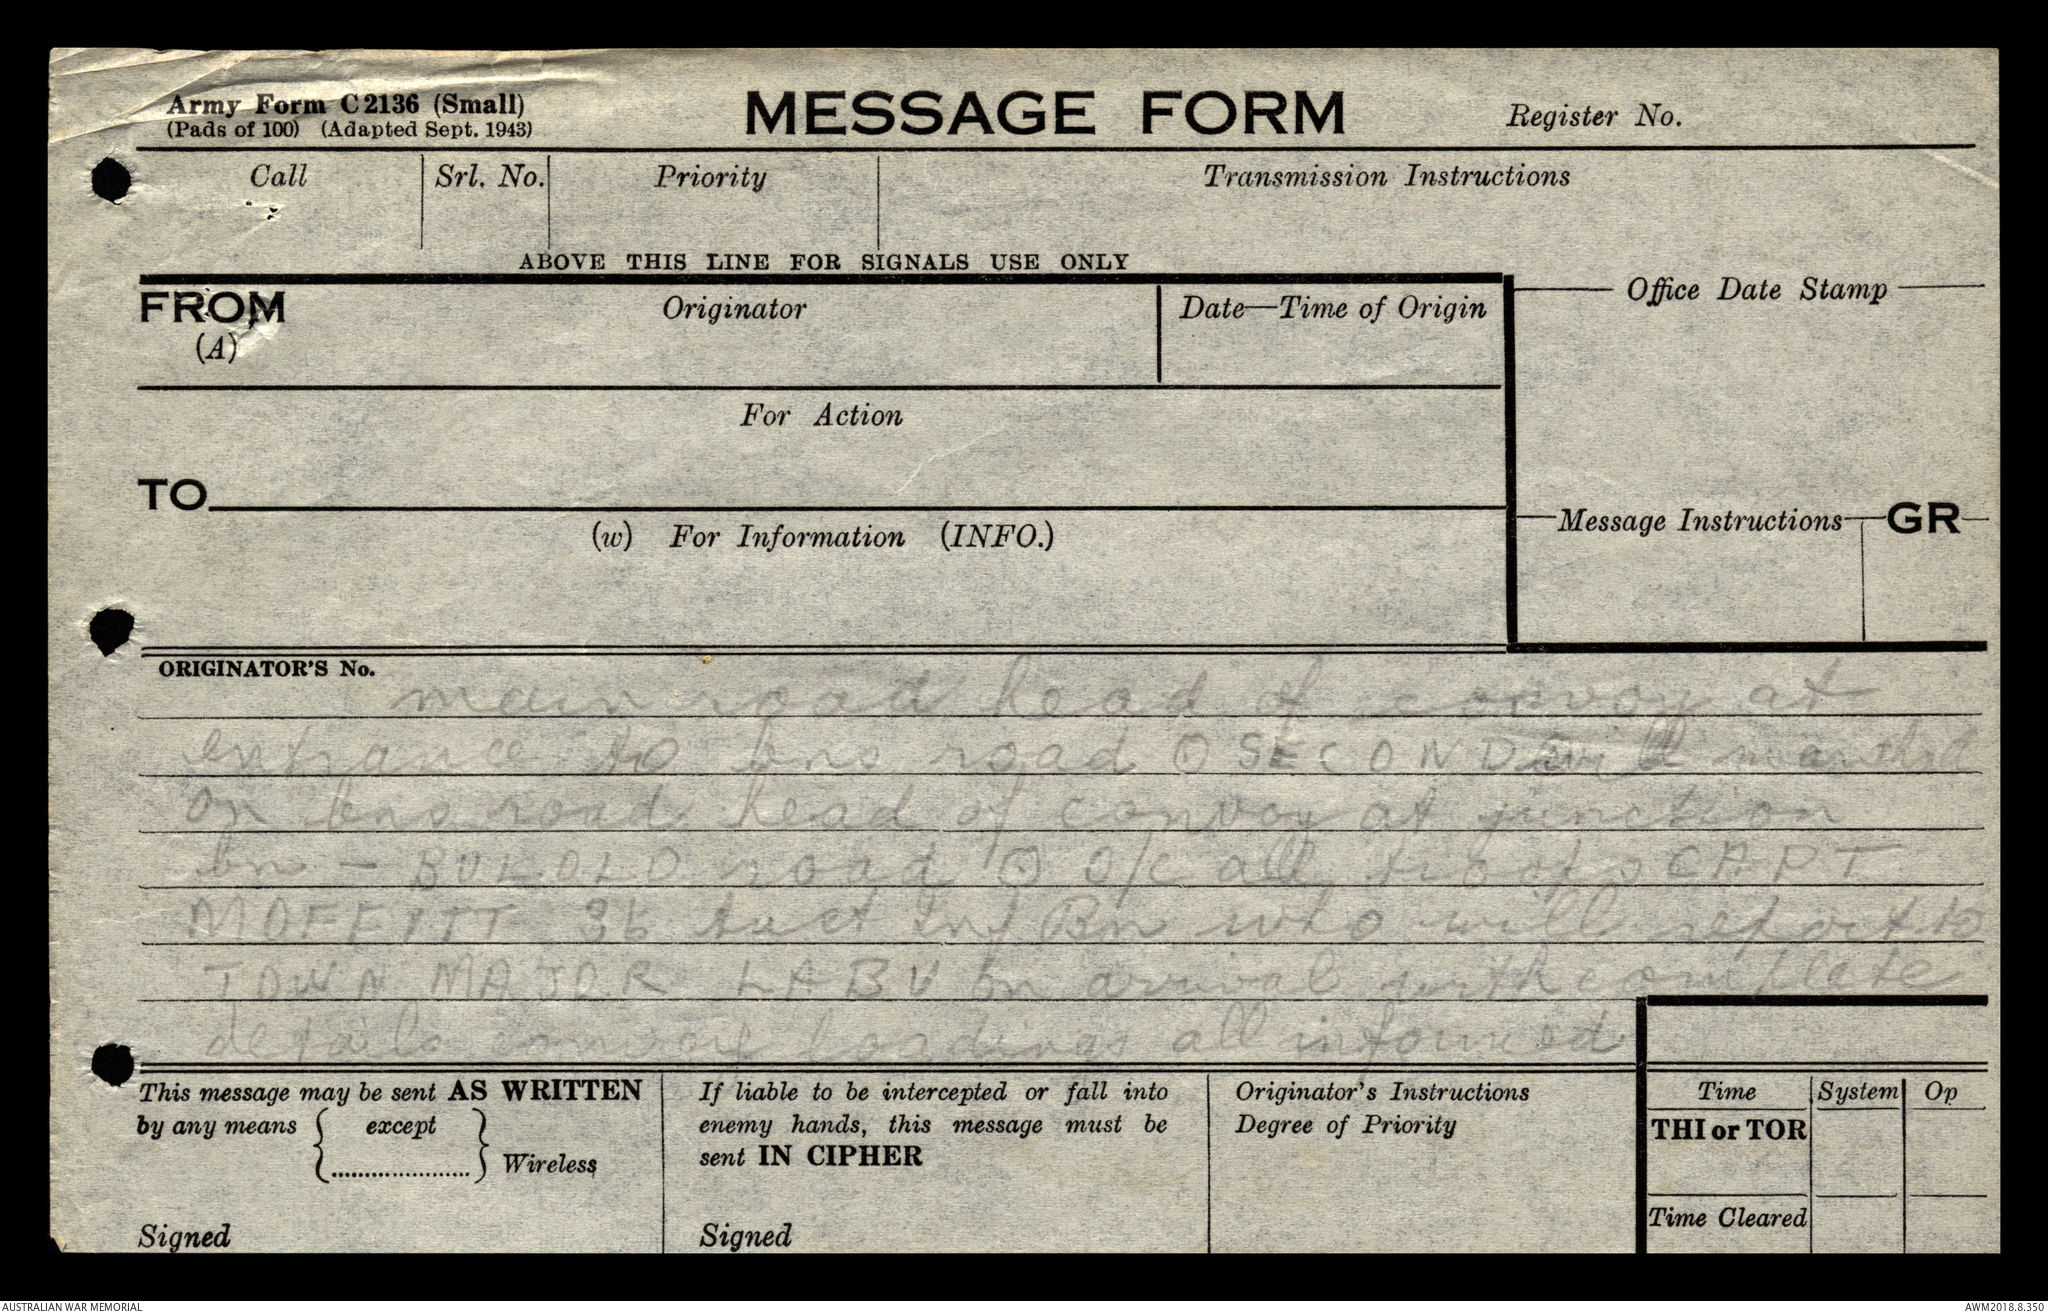 Army Form C2136 (Small)
(Pads of 100) (Adapted Sept. 1943)
MESSAGE FORM
Register No.
Call
Srl. No.
Priority
Transmission Instructions
ABOVE THIS LINE FOR SIGNALS USE ONLY
FROM
(A)
Originator
Date—Time of Origin
Office Date Stamp
For Action
TO
(w) For Information (INFO.)
Message Instructions
GR
ORIGINATOR'S No.
main road head of convoy at
entrance to bns road ⊙ SECOND will marshal
on bns road head of convoy at junction
bn - BULOLO road ⊙ O/C all troops CAPT
MOFFITT 36 Aust Inf Bn who will report to
TOWN MAJOR LABU on arrival with complete
details convoy loadings all informed
This message may be sent AS WRITTEN
by any means { except
.................... } Wireless
Signed
If liable to be intercepted or fall into
enemy hands, this message must be
sent IN CIPHER
Signed
Originator's Instructions
Degree of Priority
Time
System
Op
THI or TOR
Time Cleared
AUSTRALIAN WAR MEMORIAL
AWM2018.8.350